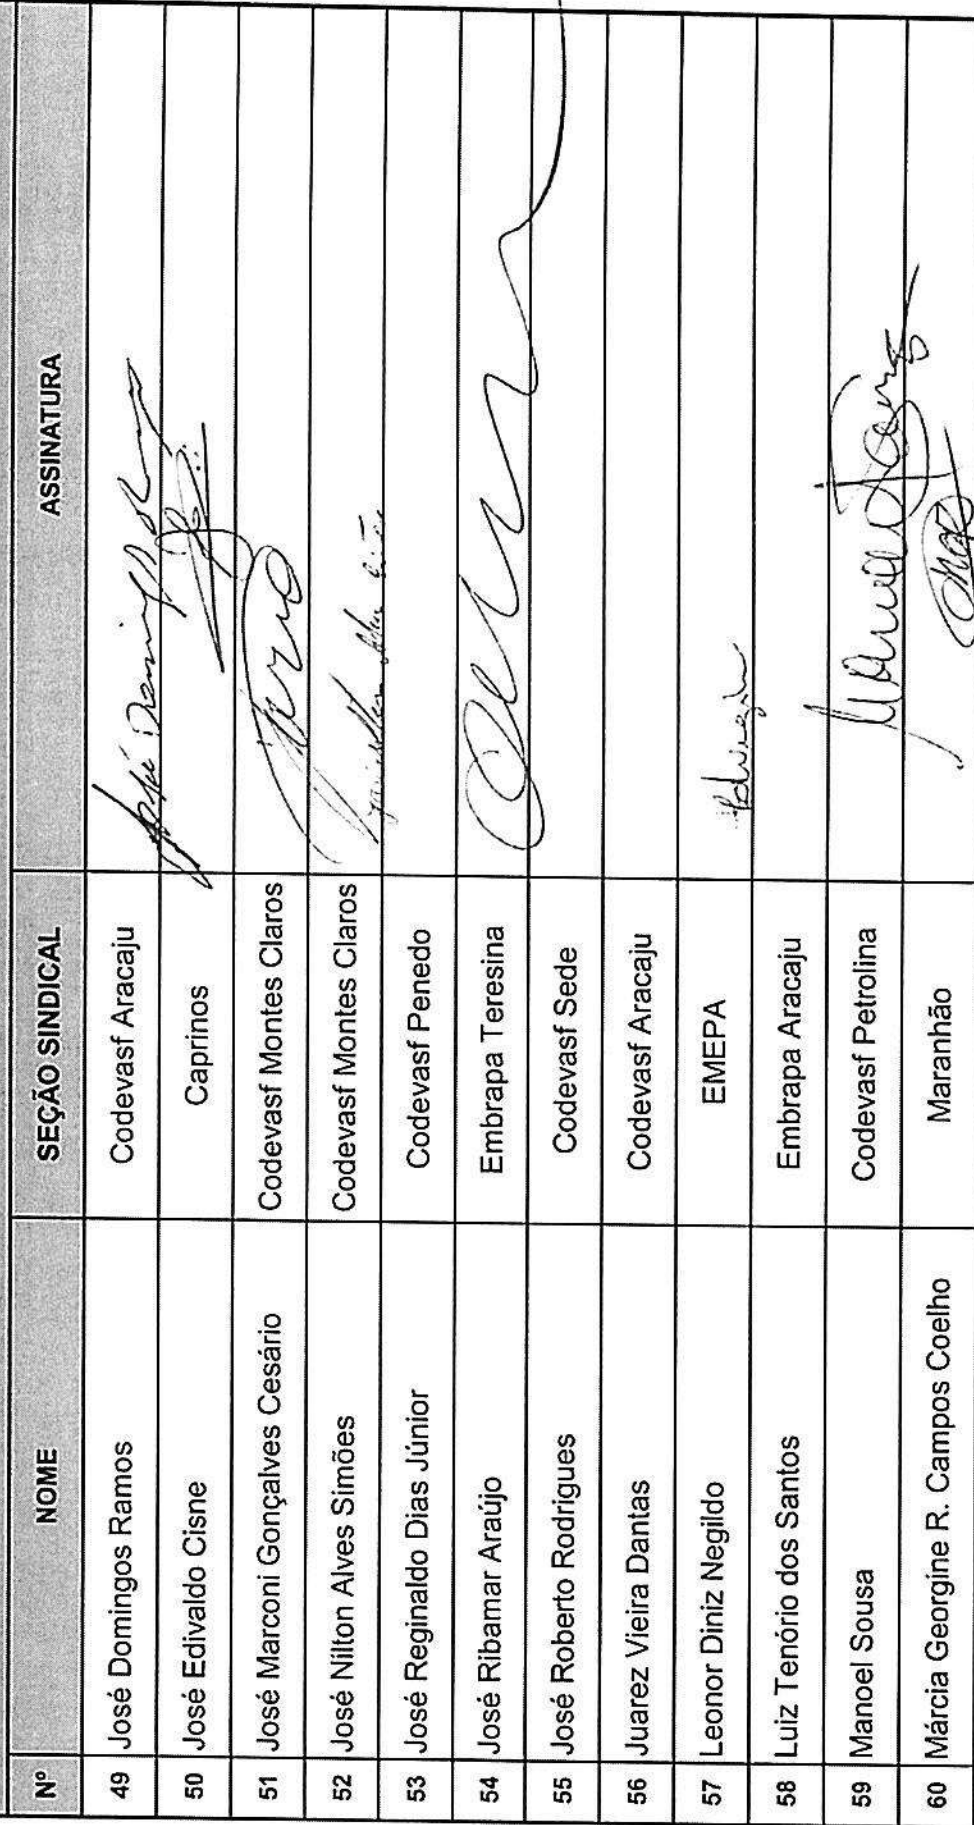 Nº NOME SEÇÃO SINDICAL ASSINATURA
49 José Domingos Ramos Codevasf Aracaju José Domingos Ramos
50 José Edivaldo Cisne Caprinos
51 José Marconi Gonçalves Cesário Codevasf Montes Claros
52 José Nilton Alves Simões Codevasf Montes Claros
53 José Reginaldo Dias Júnior Codevasf Penedo
54 José Ribamar Araújo Embrapa Teresina
55 José Roberto Rodrigues Codevasf Sede
56 Juarez Vieira Dantas Codevasf Aracaju
57 Leonor Diniz Negildo EMEPA
58 Luiz Tenório dos Santos Embrapa Aracaju
59 Manoel Sousa Codevasf Petrolina
60 Márcia Georgine R. Campos Coelho Maranhão